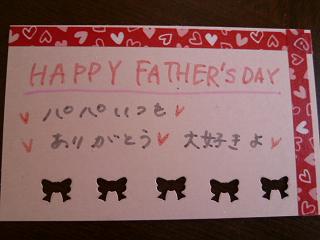 HAPPY FATHER'S DAY
♥パパいつも♥
♥ありがとう♥大好きよ♥